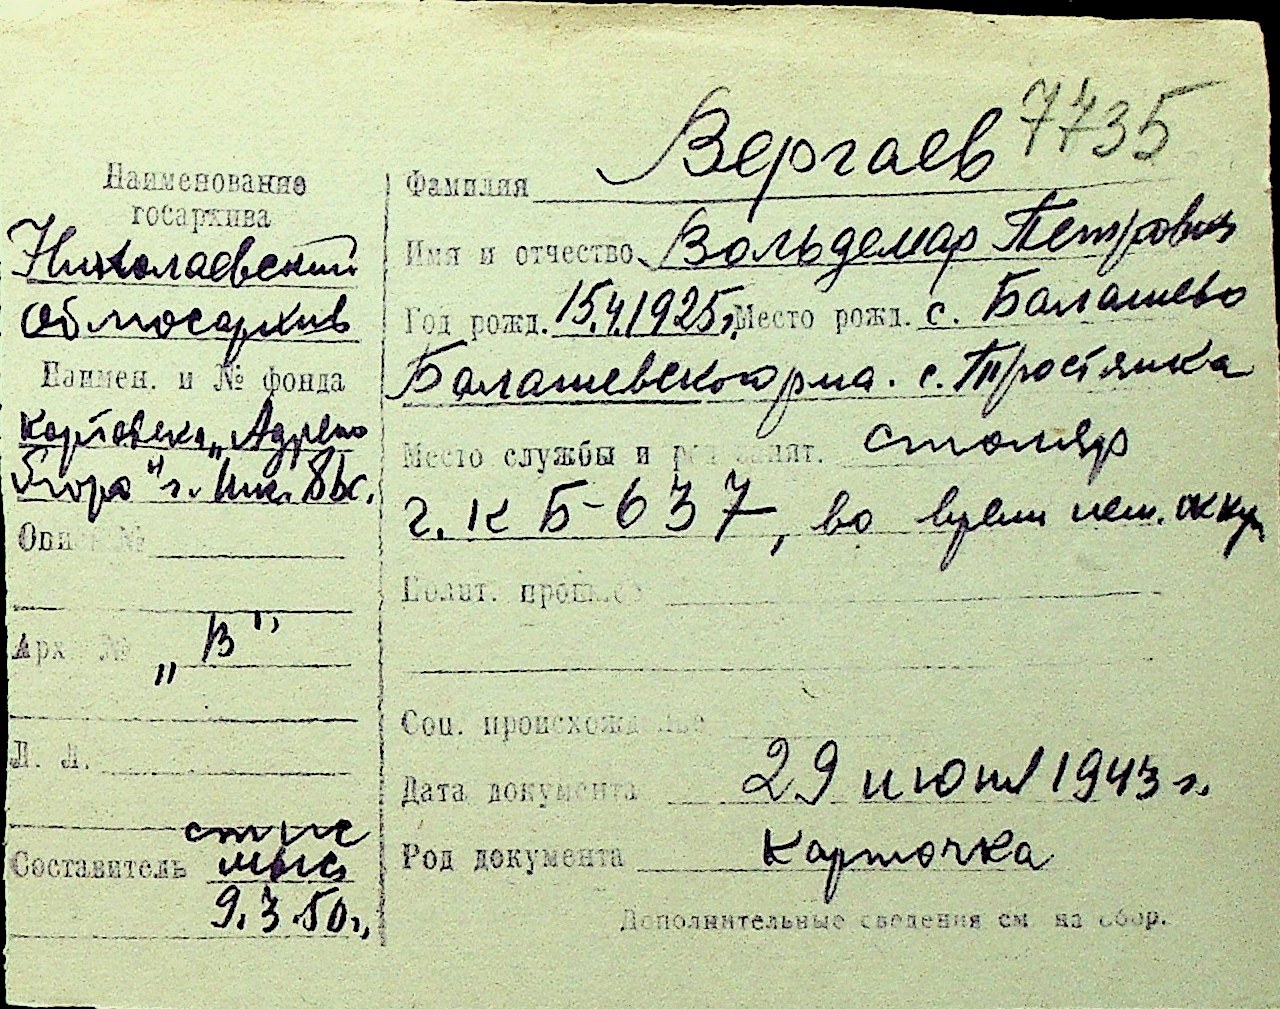 7735
Наименование
госархива
Николаевский
облгосархив
Наимен. и № фонда
Картотека „Адресно
бюро" г.
Опись №
Арх. № „В"
Л. Л.
Составитель
9.3.50 г.
Фамилия Вергаев
Имя и отчество Вольдемар Петрович
Год рожд. 15.4.1925 г. Место рожд. с. Балашево
Балашевского р-на. с. Тростянка
Место службы и род занят. столяр
г. К Б-637, во время нем. оккуп
Полит. прошлое
Соц. происхождение
Дата документа 29 июня 1943 г.
Род документа карточка
Дополнительные сведения см на обор.